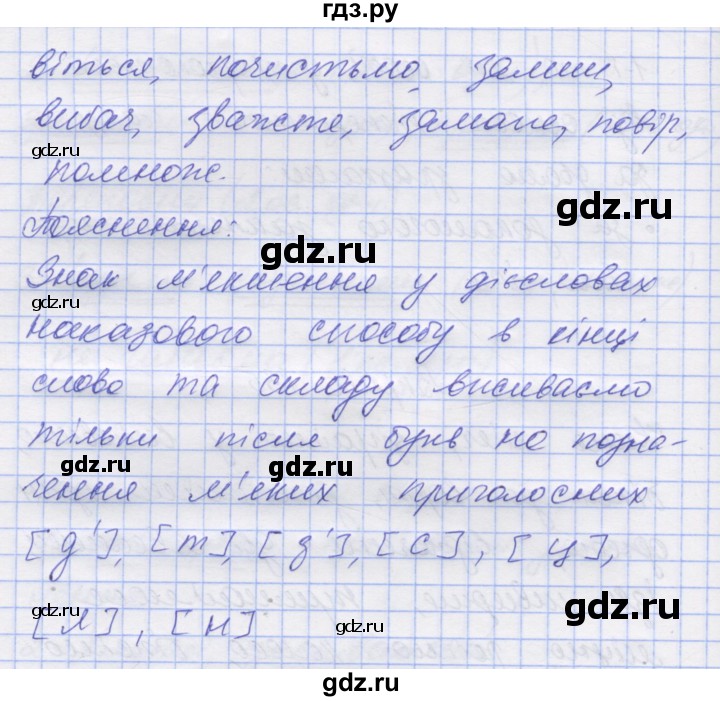 гдз.ру
віться, почистьмо, залиш,
вибач, зважте, замаже, повір,
gdz.ru
помножс.
gdz.ru
Пояснення:
gdz.ru
Знак м'якшення у дієсловах
gdz.ru
наказового способу в кінці
слова та складу висиваємо
тільки після букв на позна-
gdz.ru
gdz.ru
чення м'яких приголосних
gdz.ru
[д'], [т], [з'], [с], [ц],
[л], [н]
gdz.ru
gdz.ru
gdz.ru